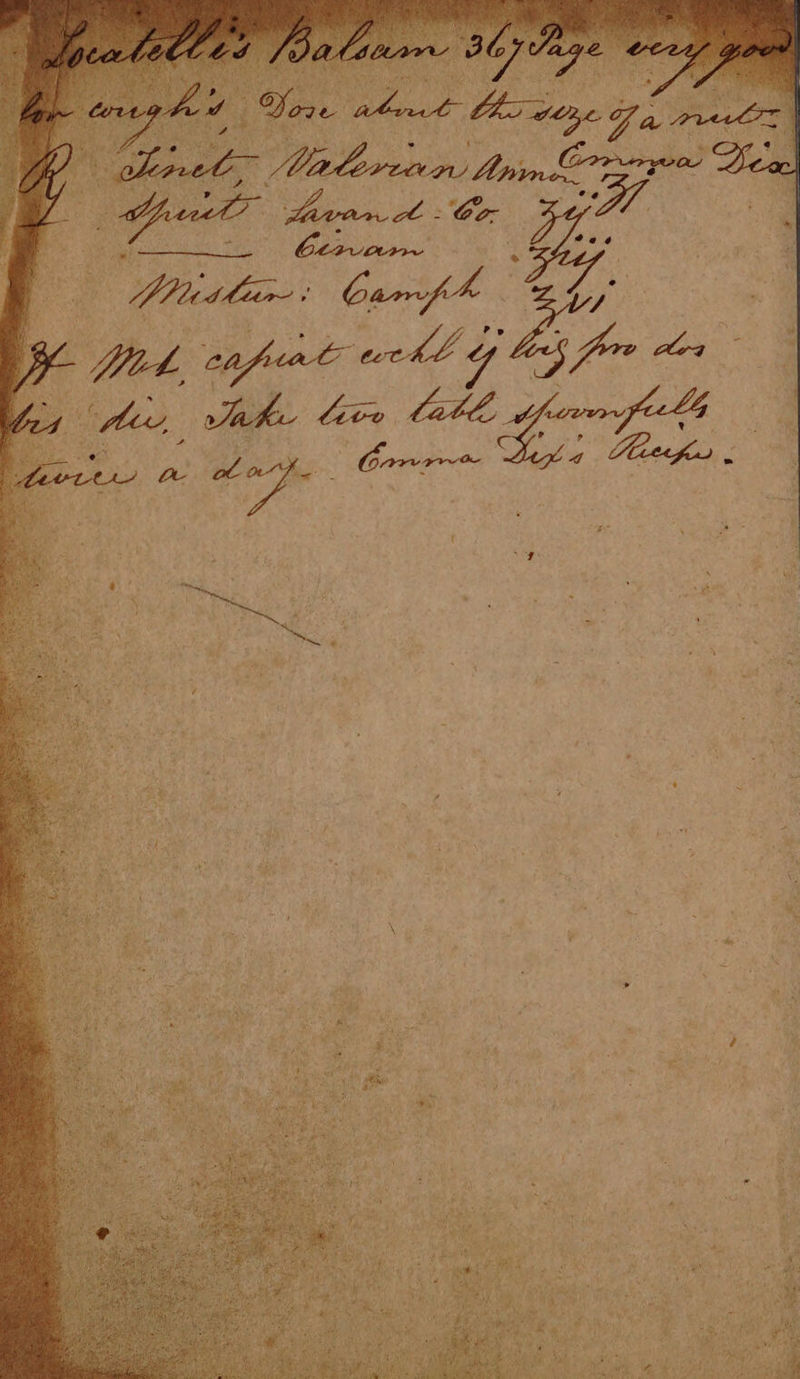 Locatelli's Balsam 367 Page very good
for cough's Dose about the size of a nut
℞ Tinct, Valerian Amm
Spirit Lavand - Co ʒij
——— Ciнnam ʒiij
Mistur: Camph ℥vj
M capiat cochl ij larg pro dos
bis die, Take two table spoonfulls
twice a day. Emma Recipe.